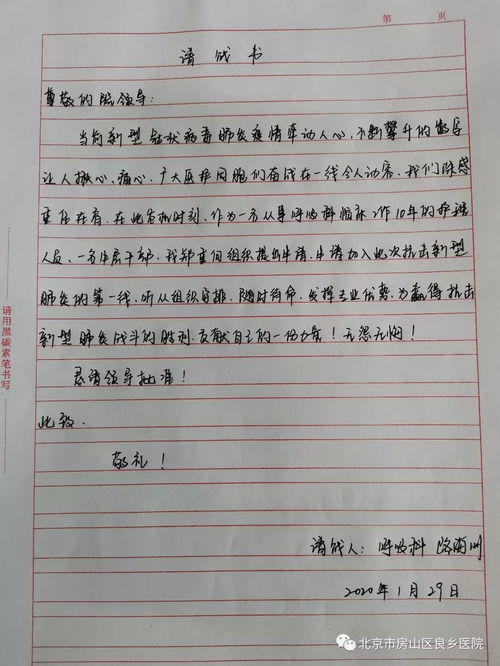 第 页
请战书
尊敬的院领导:
当前新型冠状病毒肺炎疫情牵动人心,不断攀升的数字
让人揪心、痛心,广大医护同胞们奋战在一线令人动容,我们深感
重任在肩,在此危机时刻,作为一名从事呼吸科临床工作10年的护理
人员、一名中层干部,我郑重向组织提出申请,申请加入此次抗击新型
肺炎的第一线,听从组织安排,随时待命,发挥专业优势,为赢得抗击
新型肺炎战斗的胜利,贡献自己的一份力量!无怨无悔!
恳请领导批准!
此致.
敬礼!
请战人: 呼吸科
2020年1月29日
请用黑碳素笔书写
北京市房山区良乡医院